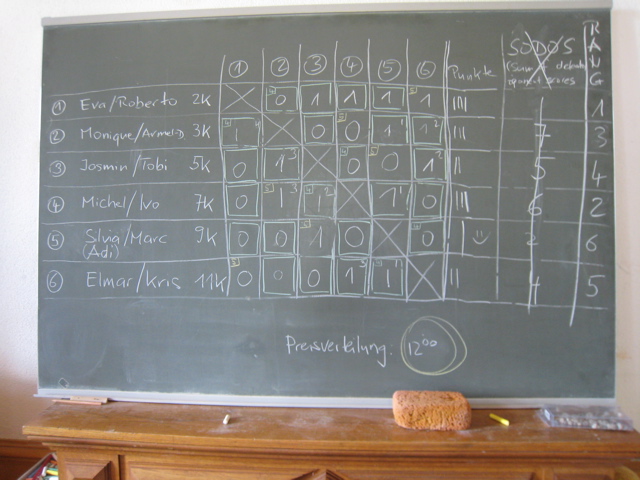 ① ② ③ ④ ⑤ ⑥ Punkte SODOS RANG
① Eva/Roberto 2K 0 1 1 1 1 |||| 1
② Monique/ 3K 1 0 0 1 1 ||| 7 3
③ Josmin/Tobi 5K 0 1 0 0 1 || 5 4
④ Michel/Ivo 7K 0 1 1 1 0 ||| 6 2
⑤ Silvia/Marc 9K 0 0 1 0 0 | 2 6
(Adi)
⑥ Elmar/Kris 11K 0 0 0 1 1 || 4 5
Preisverteilung: 12⁰⁰